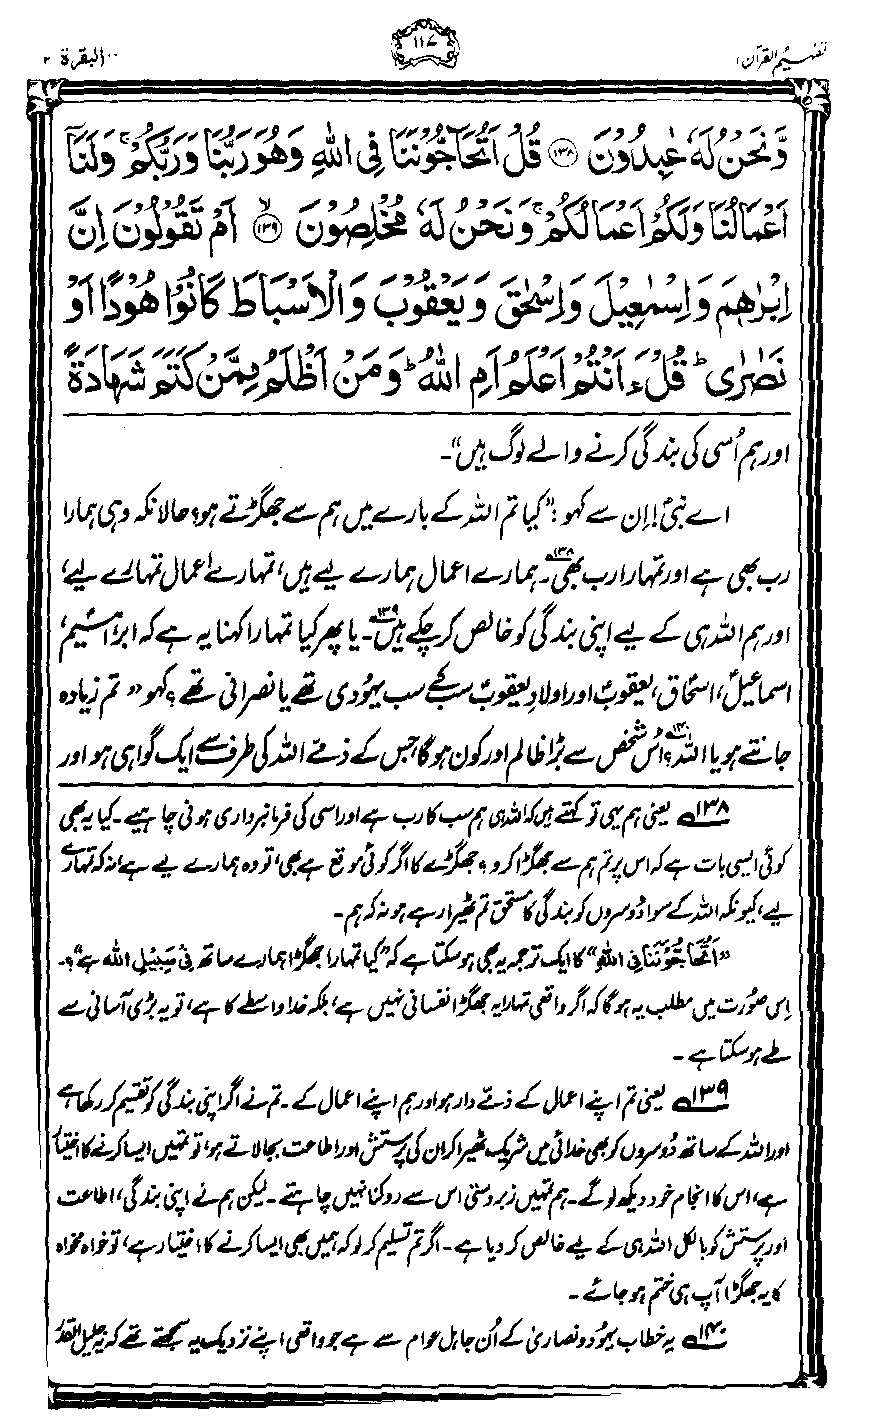 تفہیم القرآن ۱
۱۱۷
البقرۃ ۲
وَّنَحْنُ لَهٗ عٰبِدُوْنَ ﴿۱۳۸﴾ قُلْ اَتُحَآجُّوْنَنَا فِی اللّٰهِ وَهُوَ رَبُّنَا وَرَبُّكُمْ ۚ وَلَنَاۤ
اَعْمَالُنَا وَلَكُمْ اَعْمَالُكُمْ ۚ وَنَحْنُ لَهٗ مُخْلِصُوْنَ ﴿۱۳۹﴾ۙ اَمْ تَقُوْلُوْنَ اِنَّ
اِبْرٰهٖمَ وَاِسْمٰعِیْلَ وَاِسْحٰقَ وَیَعْقُوْبَ وَالْاَسْبَاطَ كَانُوْا هُوْدًا اَوْ
نَصٰرٰی ؕ قُلْ ءَاَنْتُمْ اَعْلَمُ اَمِ اللّٰهُ ؕ وَمَنْ اَظْلَمُ مِمَّنْ كَتَمَ شَهَادَةً
اور ہم اُسی کی بندگی کرنے والے لوگ ہیں“۔
اے نبیؐ! اِن سے کہو: ”کیا تم اللہ کے بارے میں ہم سے جھگڑتے ہو؟ حالانکہ وہی ہمارا
رب بھی ہے اور تمہارا رب بھی۱۳۸۔ ہمارے اعمال ہمارے لیے ہیں، تمہارے اعمال تمہارے لیے،
اور ہم اللہ ہی کے لیے اپنی بندگی کو خالص کر چکے ہیں۱۳۹۔ یا پھر کیا تمہارا کہنا یہ ہے کہ ابراہیمؑ،
اسماعیلؑ، اسحاقؑ، یعقوبؑ اور اولادِ یعقوبؑ سب کے سب یہودی تھے یا نصرانی تھے؟ کہو ”تم زیادہ
جانتے ہو یا اللہ؟۱۴۰ اُس شخص سے بڑا ظالم اور کون ہوگا جس کے ذمّے اللہ کی طرف سے ایک گواہی ہو اور
۱۳۸ یعنی ہم یہی تو کہتے ہیں کہ اللہ ہی ہم سب کا رب ہے اور اسی کی فرمانبرداری ہونی چاہیے۔ کیا یہ بھی
کوئی ایسی بات ہے کہ اس پر تم ہم سے جھگڑا کرو؟ جھگڑے کا اگر کوئی موقع ہے بھی، تو وہ ہمارے لیے ہے، نہ کہ تمہارے
لیے، کیونکہ اللہ کے سوا دُوسروں کو بندگی کا مستحق تم ٹھیرا رہے ہو نہ کہ ہم۔
”اَتُحَآجُّوْنَنَا فِی اللّٰهِ“ کا ایک ترجمہ یہ بھی ہو سکتا ہے کہ ”کیا تمہارا جھگڑا ہمارے ساتھ فِیْ سَبِیْلِ اللّٰہ ہے“؟۔
اِس صُورت میں مطلب یہ ہوگا کہ اگر واقعی تمہارا یہ جھگڑا نفسانی نہیں ہے، بلکہ خدا واسطے کا ہے، تو یہ بڑی آسانی سے
طے ہو سکتا ہے۔
۱۳۹ یعنی تم اپنے اعمال کے ذمّے دار ہو اور ہم اپنے اعمال کے۔ تم نے اگر اپنی بندگی کو تقسیم کر رکھا ہے
اور اللہ کے ساتھ دُوسروں کو بھی خدائی میں شریک ٹھیرا کر ان کی پرستش اور اطاعت بجا لاتے ہو، تو تمہیں ایسا کرنے کا اختیار
ہے، اس کا انجام خود دیکھ لو گے۔ ہم تمہیں زبردستی اس سے روکنا نہیں چاہتے۔ لیکن ہم نے اپنی بندگی، اطاعت
اور پرستش کو بالکل اللہ ہی کے لیے خالص کر دیا ہے۔ اگر تم تسلیم کر لو کہ ہمیں بھی ایسا کرنے کا اختیار ہے، تو خواہ مخواہ
کا یہ جھگڑا آپ ہی ختم ہو جائے۔
۱۴۰ یہ خطاب یہُود و نصاریٰ کے اُن جاہل عوام سے ہے جو واقعی اپنے نزدیک یہ سمجھتے تھے کہ یہ جلیل القدر